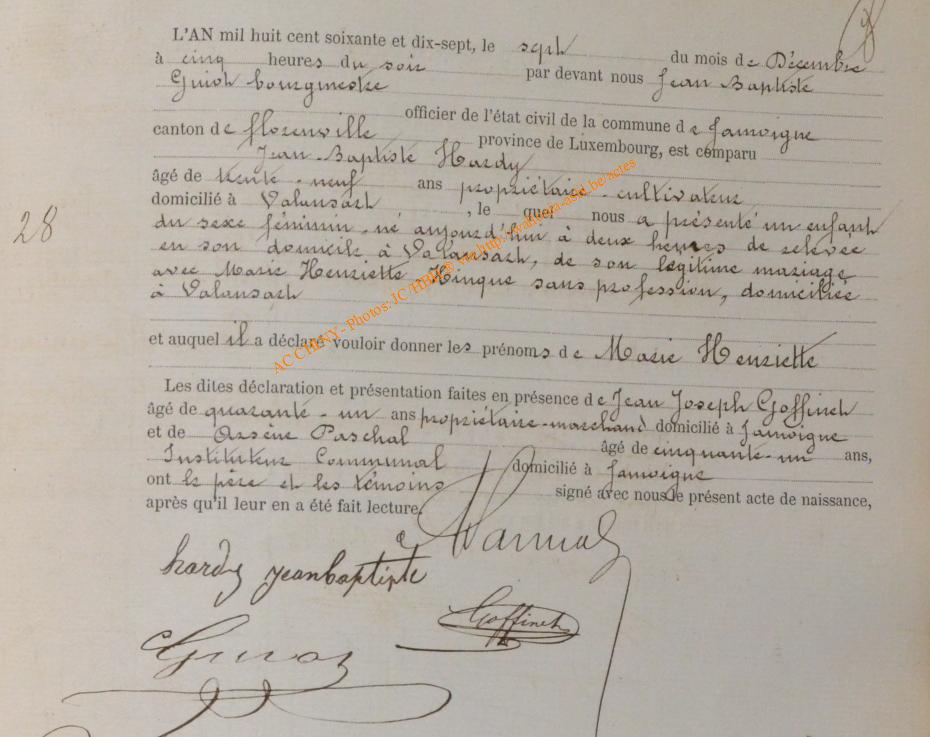 L'AN mil huit cent soixante et dix-sept, le sept du mois de Décembre
à cinq heures du soir par devant nous Jean Baptiste
bourgmestre
officier de l'état civil de la commune de Jamoigne
canton de florenville province de Luxembourg, est comparu
Jean-Baptiste Hardy
âgé de trente-neuf ans propriétaire-cultivateur
domicilié à Valansart, le quel nous a présenté un enfant
28
du sexe féminin, né aujourd'hui à deux heures de relevée
en son domicile à Valansart, de son légitime mariage
avec Marie Henriette Hinque sans profession, domiciliée
à Valansart
et auquel il a déclaré vouloir donner les prénoms de Marie Henriette
Les dites déclaration et présentation faites en présence de Jean Joseph Goffinet
âgé de quarante-un ans propriétaire-marchand domicilié à Jamoigne
et de Arsène Paschal âgé de cinquante-un ans,
Instituteur Communal domicilié à Jamoigne
ont le père et les témoins signé avec nous le présent acte de naissance,
après qu'il leur en a été fait lecture.
hardy jeanbaptiste
Goffinet